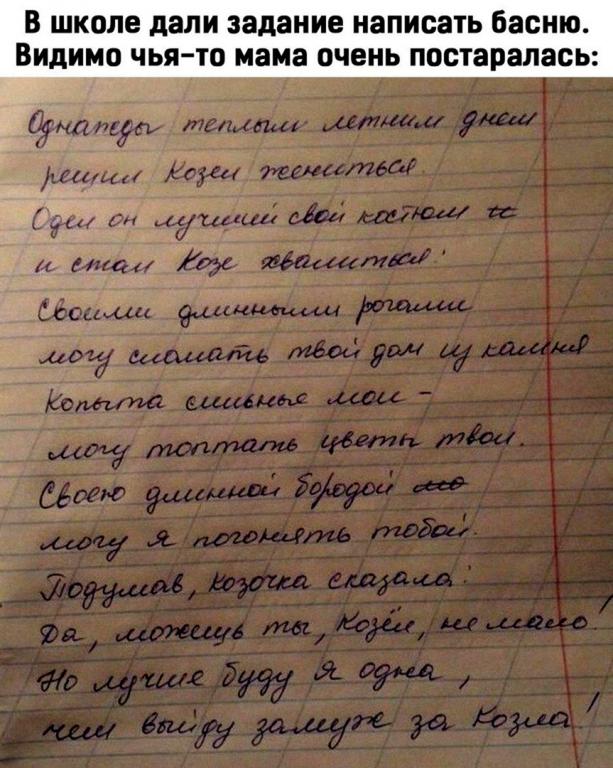 В школе дали задание написать басню.
Видимо чья-то мама очень постаралась:
Однажды теплым летним днем
решил Козел жениться
Одел он лучший свой костюм и
и стал Козе хвалиться:
Своими длинными рогами
могу сломать твой дом из камня
Копыта сильные мои –
могу топтать цветы твои.
Своею длинной бородой мо
могу я погонять тобой.
Подумав, козочка сказала:
Да, можешь ты, Козёл, не мало!
Но лучше буду я одна,
чем выйду замуж за Козла!